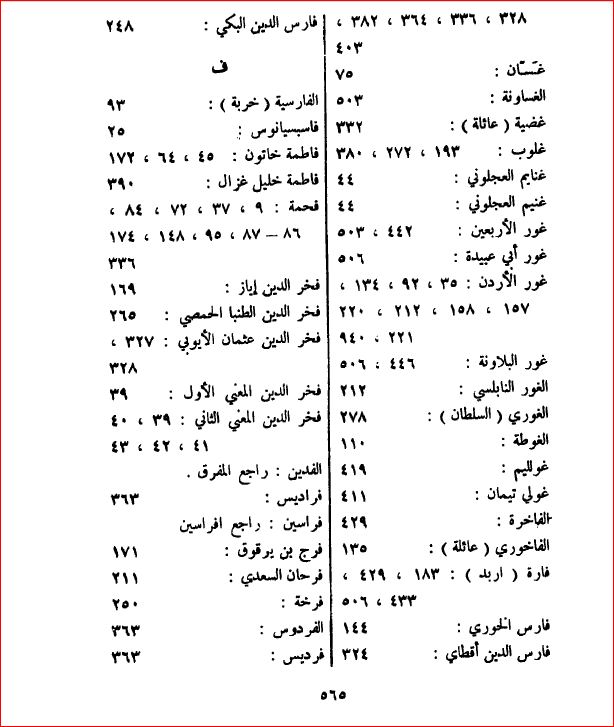 ٣٢٨ ، ٣٣٦ ، ٣٦٤ ، ٣٨٢ ،
٤٠٣
غسّان : ٧٥
الغساونة : ٥٠٣
غضية ( عائلة ) : ٣٣٢
غلوب : ١٩٣ ، ٢٧٢ ، ٣٨٠
غنايم العجلوني : ٤٤
غنيم العجلوني : ٤٤
غور الأربعين : ٤٤٢ ، ٥٠٣
غور أبي عبيدة : ٥٠٦
غور الأردن : ٣٥ ، ٩٢ ، ١٣٤ ،
١٥٧ ، ١٥٨ ، ٢١٢ ، ٢٢٠
٢٢١ ، ٩٤٠
غور البلاونة : ٤٤٦ ، ٥٠٦
الغور النابلسي : ٢١٢
الغوري ( السلطان ) : ٢٧٨
الغوطة : ١١٠
غولليم : ٤١٩
غولي تيمان : ٤١١
الفاخرة : ٤٢٩
الفاخوري ( عائلة ) : ١٣٥
فارة ( اربد ) : ١٨٣ ، ٤٢٩ ،
٤٣٣ ، ٥٠٦
فارس الخوري : ١٤٤
فارس الدين أقطاي : ٣٢٤
فارس الدين البكي : ٢٤٨
ف
الفارسية ( خربة ) : ٩٣
فاسبسيانوس : ٢٥
فاطمة خاتون : ٤٥ ، ٦٤ ، ١٧٢
فاطمة خليل غزال : ٣٩٠
فحمة : ٩ ، ٣٧ ، ٧٢ ، ٨٤ ،
٨٦ – ٨٧ ، ٩٥ ، ١٤٨ ، ١٧٤
٣٣٦
فخر الدين إياز : ١٦٩
فخر الدين الطنبا الحمصي : ٢٦٥
فخر الدين عثمان الأيوبي : ٣٢٧ ،
٣٢٨
فخر الدين المعني الأول : ٣٩
فخر الدين المعني الثاني : ٣٩ ، ٤٠
٤١ ، ٤٢ ، ٤٣
الفدين : راجع المفرق .
فراديس : ٣٦٣
فراسين : راجع افراسين
فرج بن برقوق : ١٧١
فرحان السعدي : ٢١١
فرخة : ٢٥٠
الفردوس : ٣٦٣
فرديس : ٣٦٣
٥٦٥